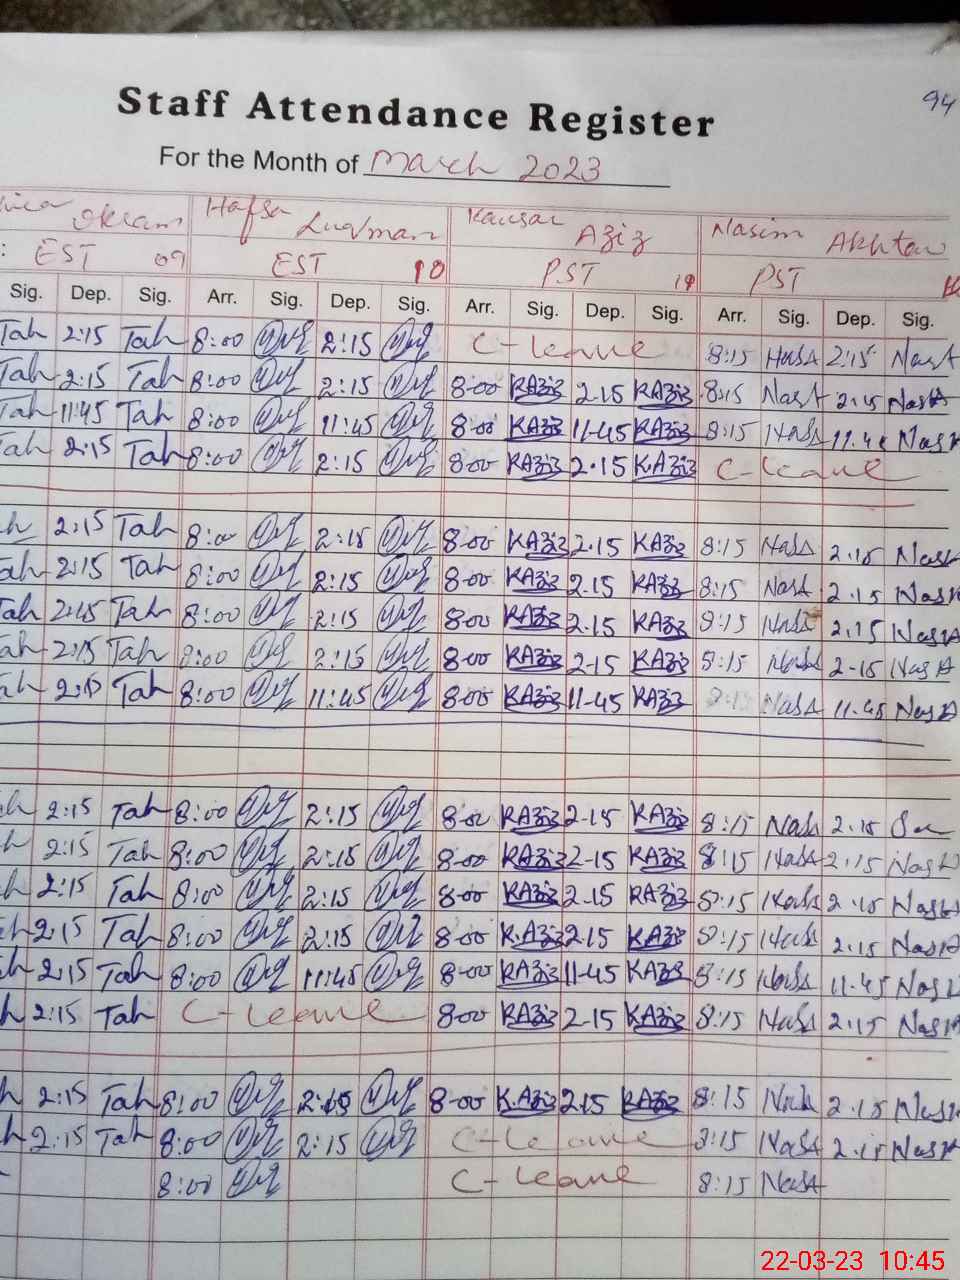 94
Staff Attendance Register
For the Month of March 2023
Ikram Hafsa Luqman Kausar Aziz Nasim Akhtar
: EST 09 EST 10 PST 19 PST
Sig. Dep. Sig. Arr. Sig. Dep. Sig. Arr. Sig. Dep. Sig. Arr. Sig. Dep. Sig.
Tah 2:15 Tah 8:00 2:15 C-leave 8:15 NasA 2:15 NasA
Tah 2:15 Tah 8:00 2:15 8-00 KAziz 2.15 KAziz 8:15 NasA 2:15 NasA
Tah 11:45 Tah 8:00 11:45 8-00 KAziz 11-45 KAziz 8:15 NasA 11.45 NasA
Tah 2:15 Tah 8:00 2:15 8-00 KAziz 2.15 K.Aziz C-leave
h 2:15 Tah 8:00 2:15 8-00 KAziz 2.15 KAziz 8:15 NasA 2.15 NasA
ah 2:15 Tah 8:00 2:15 8-00 KAziz 2.15 KAziz 8:15 NasA 2.15 NasA
Tah 2:15 Tah 8:00 2:15 8-00 KAziz 2.15 KAziz 8:15 NasA 2.15 NasA
ah 2:15 Tah 8:00 2:15 8-00 KAziz 2-15 KAziz 8:15 NasA 2-15 NasA
ah 2:15 Tah 8:00 11:45 8-00 KAziz 11-45 KAziz 8:15 NasA 11.45 NasA
h 2:15 Tah 8:00 2:15 8-00 KAziz 2-15 KAziz 8:15 NasA 2.15
h 2:15 Tah 8:00 2:15 8-00 KAziz 2-15 KAziz 8:15 NasA 2:15 NasA
h 2:15 Tah 8:00 2:15 8-00 KAziz 2.15 KAziz 8:15 NasA 2.15 NasA
h 2:15 Tah 8:00 2:15 8-00 K.Aziz 2.15 KAziz 8:15 NasA 2.15 NasA
h 2:15 Tah 8:00 11:45 8-00 KAziz 11-45 KAziz 8:15 NasA 11.45 NasA
h 2:15 Tah C-leave 8-00 KAziz 2-15 KAziz 8:15 NasA 2:15 NasA
h 2:15 Tah 8:00 2:15 8-00 K.Aziz 2.15 KAziz 8:15 NasA 2.15 NasA
h 2:15 Tah 8:00 2:15 C-leave 8:15 NasA 2.15 NasA
8:00 C-leave 8:15 NasA
22-03-23 10:45